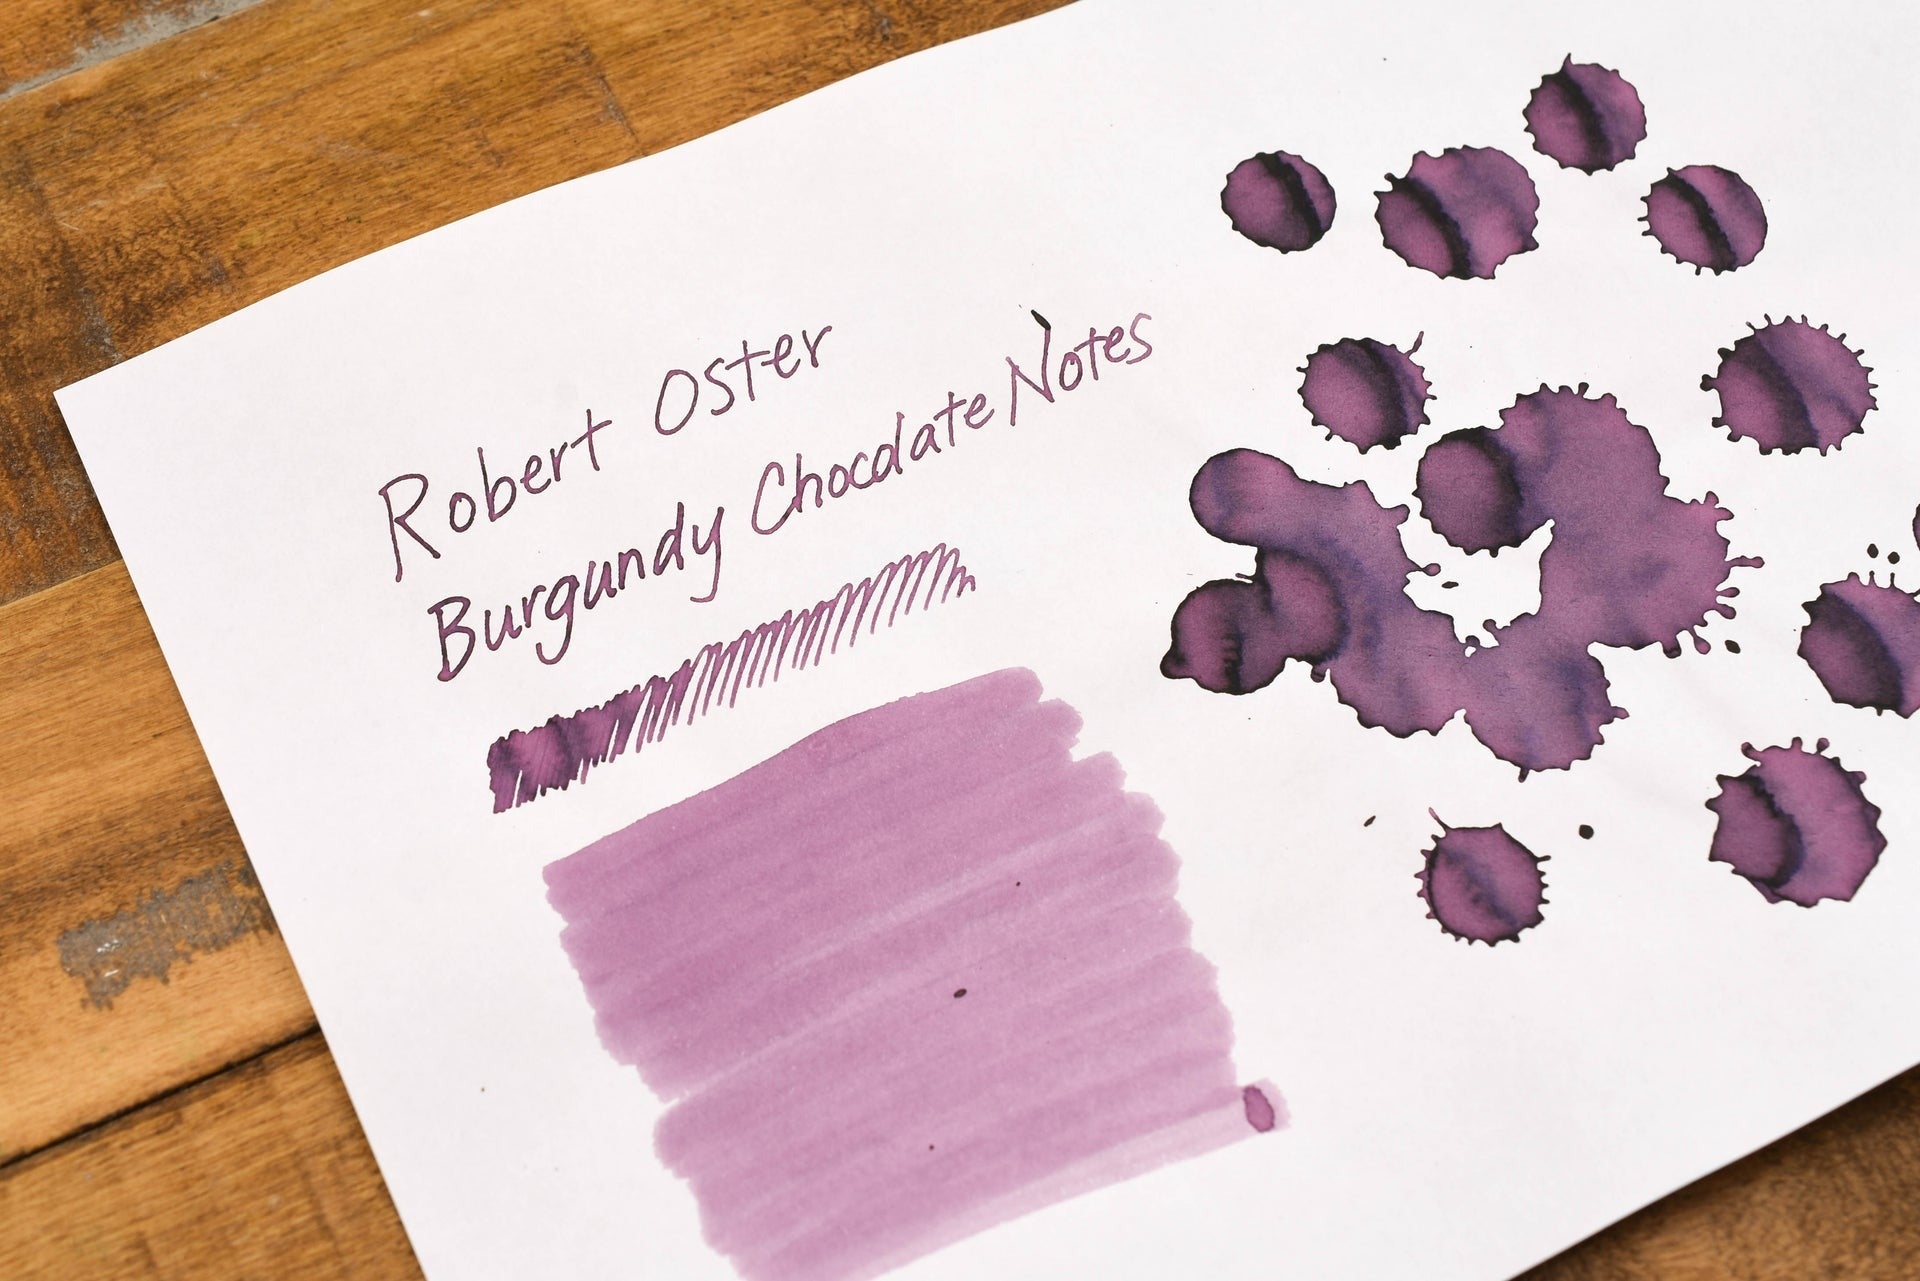 Robert Oster
Burgundy Chocolate Notes